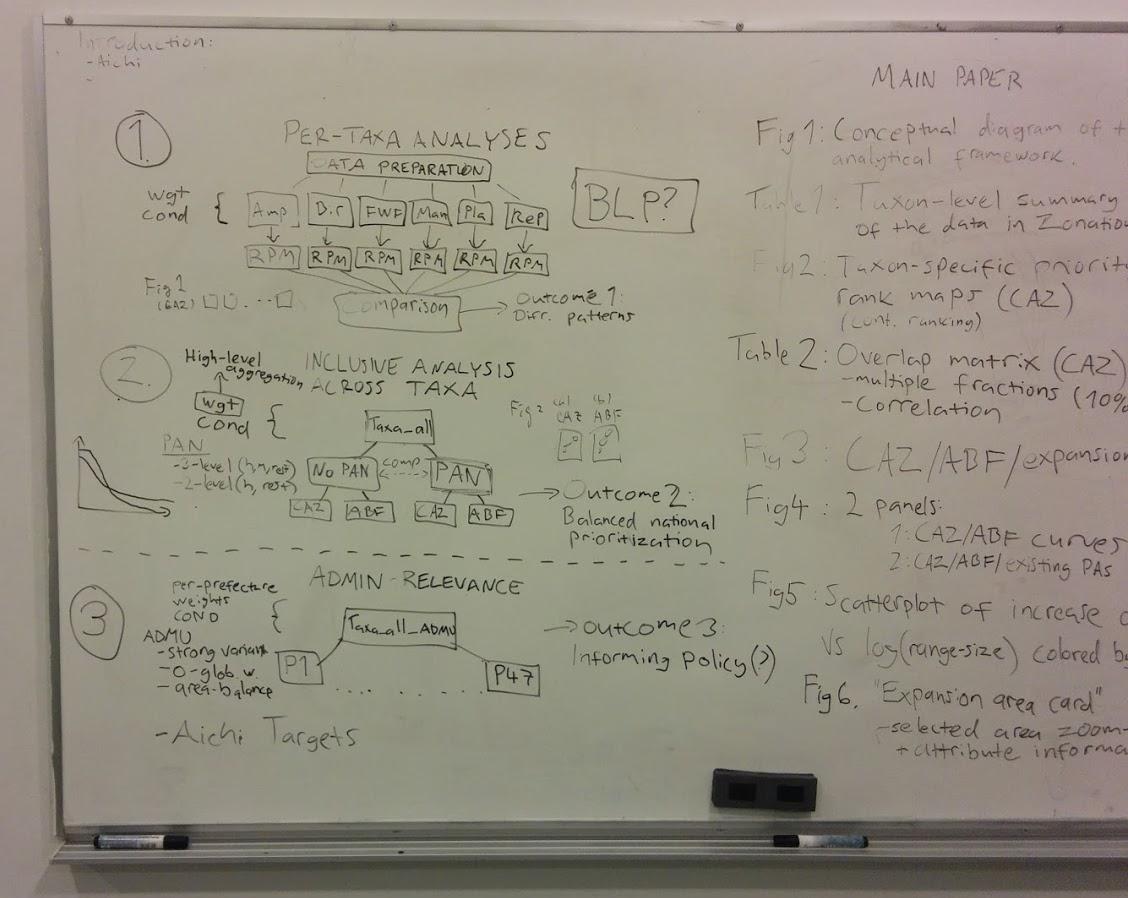 Introduction:
- Aichi
-
1.
PER-TAXA ANALYSES
DATA PREPARATION
wgt
cond
{
Amp
Bir
FWF
Mam
Pla
Rep
RPM
RPM
RPM
RPM
RPM
RPM
BLP?
Fig 1
(CAZ)
...
Comparison
Outcome 1:
Diff. patterns
2.
High-level
aggregation
wgt
cond
{
INCLUSIVE ANALYSIS
ACROSS TAXA
Taxa_all
Fig 2
(a)
(b)
CAZ
ABF
PAN
-3-level (h, m, rest)
-2-level (h, rest)
No PAN
comp
PAN
CAZ
ABF
CAZ
ABF
Outcome 2:
Balanced national
prioritization
3
per-prefecture
weights
COND
{
ADMIN-RELEVANCE
ADMU
- strong variant
- 0-glob. w.
- area-balance
Taxa_all_ADMU
P1
.. ......
P47
outcome 3:
Informing policy(?)
- Aichi Targets
MAIN PAPER
Fig 1: Conceptual diagram of t
analytical framework.
Table 1: Taxon-level summary
of the data in Zonatio
Fig 2: Taxon-specific priorit
rank maps (CAZ)
(cont. ranking)
Table 2: Overlap matrix (CAZ)
-multiple fractions (10%
-Correlation
Fig 3: CAZ/ABF/expansion
Fig4: 2 panels:
1: CAZ/ABF curves
2: CAZ/ABF/existing PAs
Fig5: Scatterplot of increase
vs log(range-size) colored b
Fig 6. "Expansion area card"
-selected area zoom-
+ attribute informa